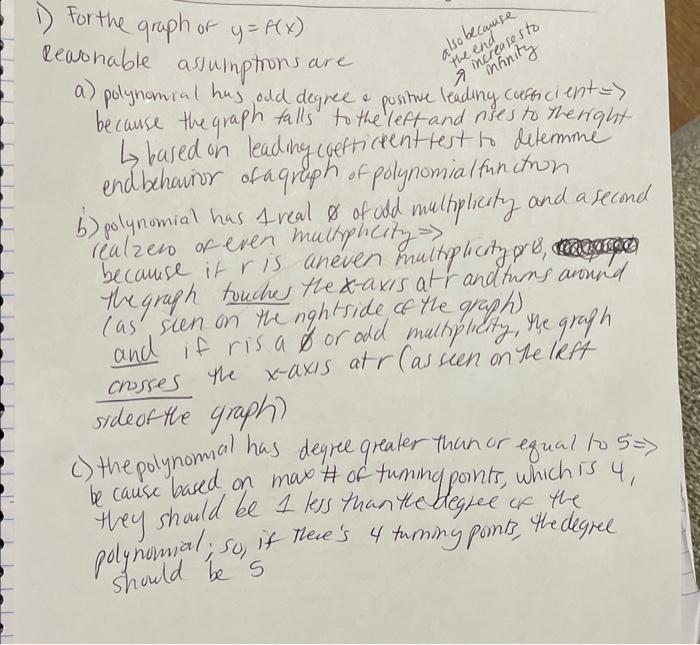 1) For the graph of y = f(x)
also because
the end
increases to
infinity
reasonable assumptions are
a) polynomial has odd degree & positive leading coefficient =>
because the graph falls to the left and rises to the right
↳ based on leading coefficient test to determine
end behavior of a graph of polynomial function
b) polynomial has 1 real Ø of odd multiplicity and a second
real zero of even multiplicity =>
because if r is an even multiplicity of Ø,
the graph touches the x-axis at r and turns around
(as seen on the right side of the graph)
and if r is a Ø of odd multiplicity, the graph
crosses the x-axis at r (as seen on the left
side of the graph)
c) the polynomial has degree greater than or equal to 5 =>
because based on max # of turning points, which is 4,
they should be 1 less than the degree of the
polynomial; so, if there's 4 turning points, the degree
should be 5